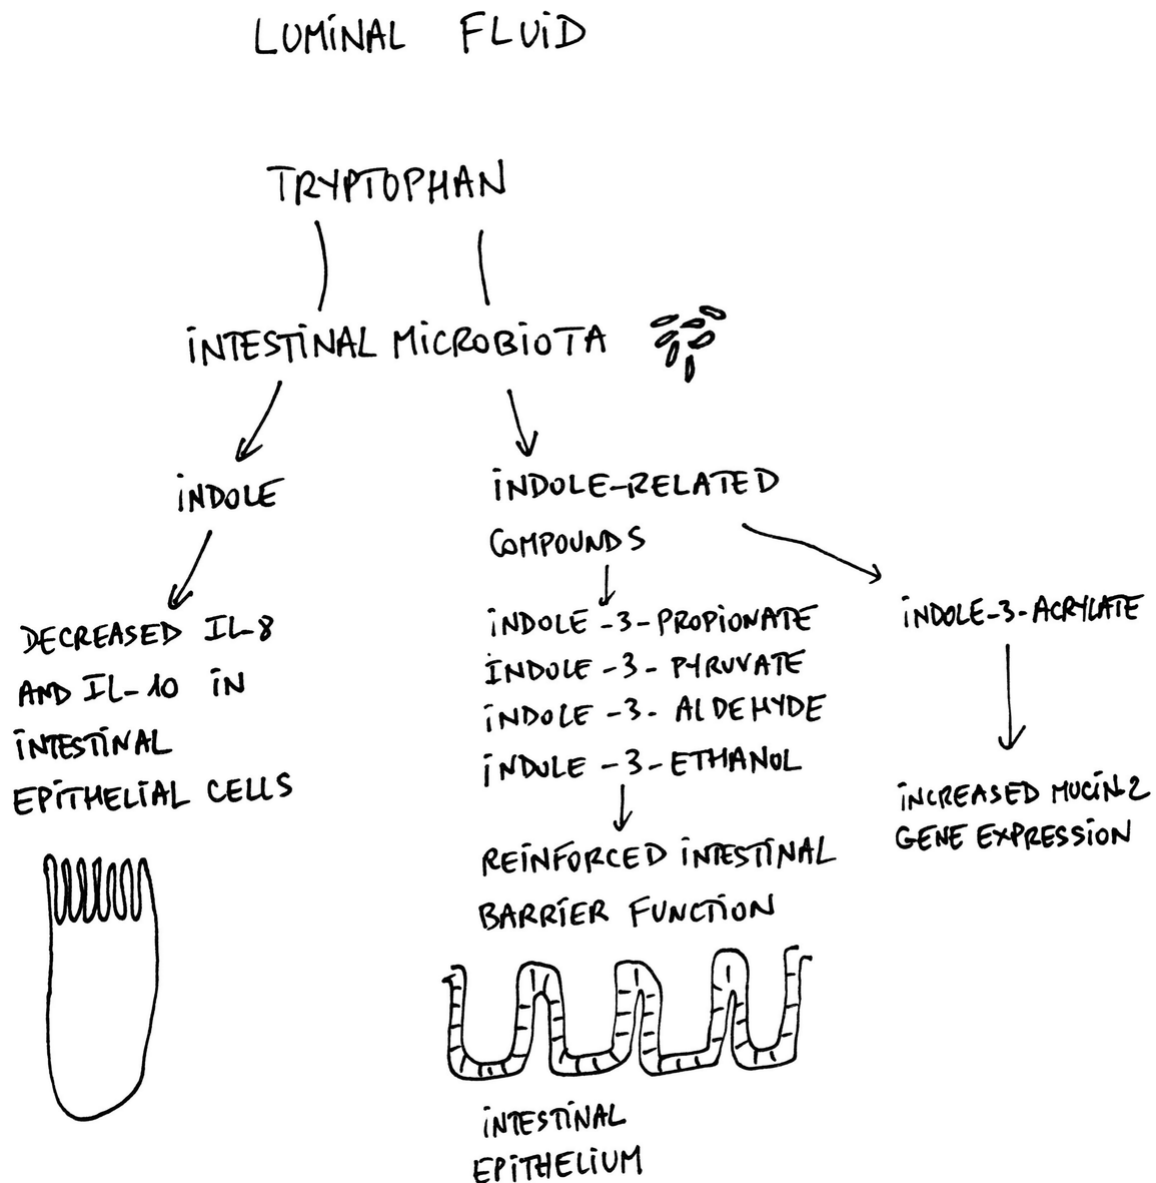 LUMINAL FLUID
TRYPTOPHAN
INTESTINAL MICROBIOTA
INDOLE
DECREASED IL-8
AND IL-10 IN
INTESTINAL
EPITHELIAL CELLS
INDOLE-RELATED
COMPOUNDS
INDOLE-3-PROPIONATE
INDOLE-3-PYRUVATE
INDOLE-3-ALDEHYDE
INDOLE-3-ETHANOL
REINFORCED INTESTINAL
BARRIER FUNCTION
INTESTINAL
EPITHELIUM
INDOLE-3-ACRYLATE
INCREASED MUCIN-2
GENE EXPRESSION